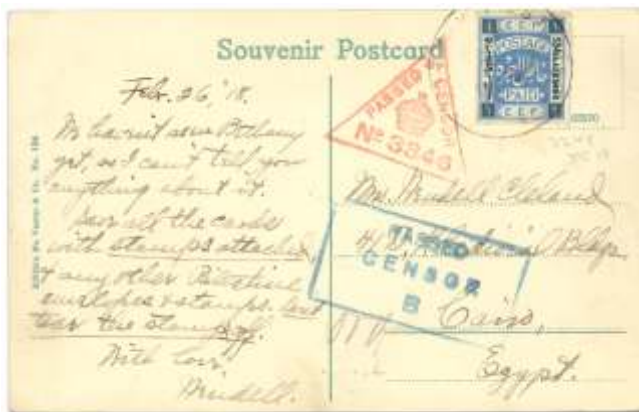 Souvenir Postcard
Feb. 26, '18.
We haven't seen Bethany
yet, so I can't tell you
anything about it.
Save all the cards
with stamps attached,
& any other Palestine
envelopes & stamps. Don't
tear the stamps off.
With love,
Wendell.
PASSED BY CENSOR
No 3846
E.E.F.
POSTAGE
PAID
E.E.F.
Mrs. Wendell Cleland
Bldgs.
Cairo,
Egypt.
PASSED
CENSOR
B